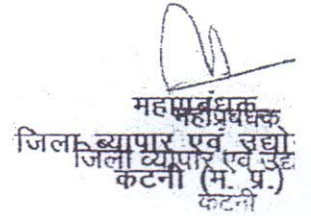 महाप्रबंधक
महाप्रबंधक
जिला व्यापार एवं उद्यो
जिला व्यापार एवं उद्य
कटनी (म. प्र.)
कटनी